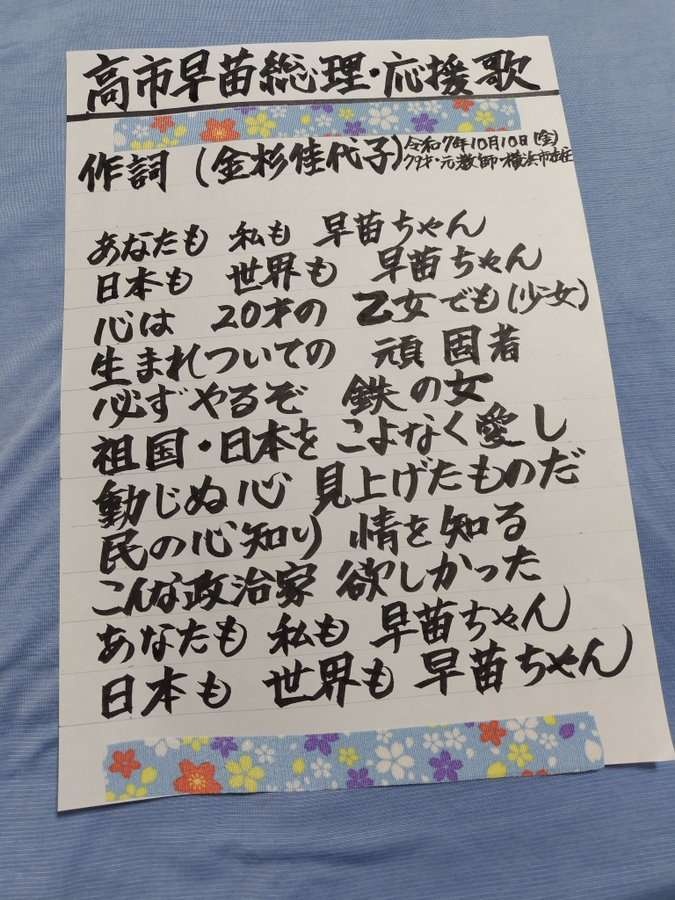 高市早苗総理・応援歌
作詞（金杉佳代子）令和7年10月10日（金）
才・元教師・横浜市在住
あなたも 私も 早苗ちゃん
日本も 世界も 早苗ちゃん
心は 20才の 乙女でも（少女）
生まれついての 頑固者
必ずやるぞ 鉄の女
祖国・日本を こよなく愛し
動じぬ心 見上げたものだ
民の心知り 情を知る
こんな政治家 欲しかった
あなたも 私も 早苗ちゃん
日本も 世界も 早苗ちゃん